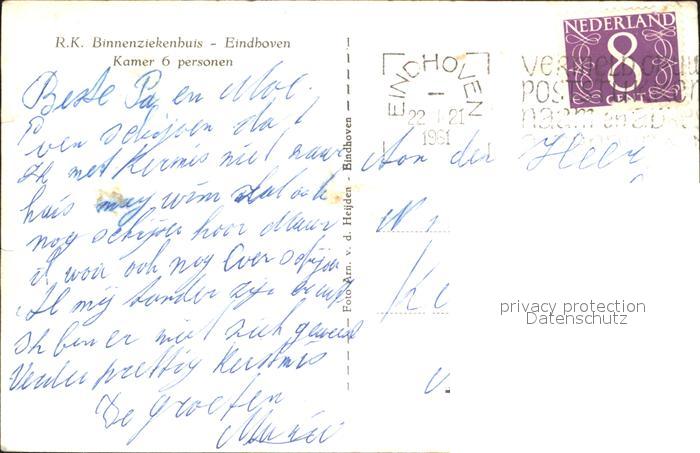 R.K. Binnenziekenhuis - Eindhoven
Kamer 6 personen
Beste Pa en Moe.
even schijven dat
ik met Kermis niet naar
huis mag wim zal ook
nog schijven hoor Maar
ik wou ook nog Even schijven
Al mij tanden zijn
Ik ben er niet ziek geweest
Verder prettig Kermis
De groeten
Foto Arn. v. d. Heijden - Eindhoven
EINDHOVEN
22 1 21
1961
NEDERLAND
8
CENT
Aan den Heer
privacy protection
Datenschutz